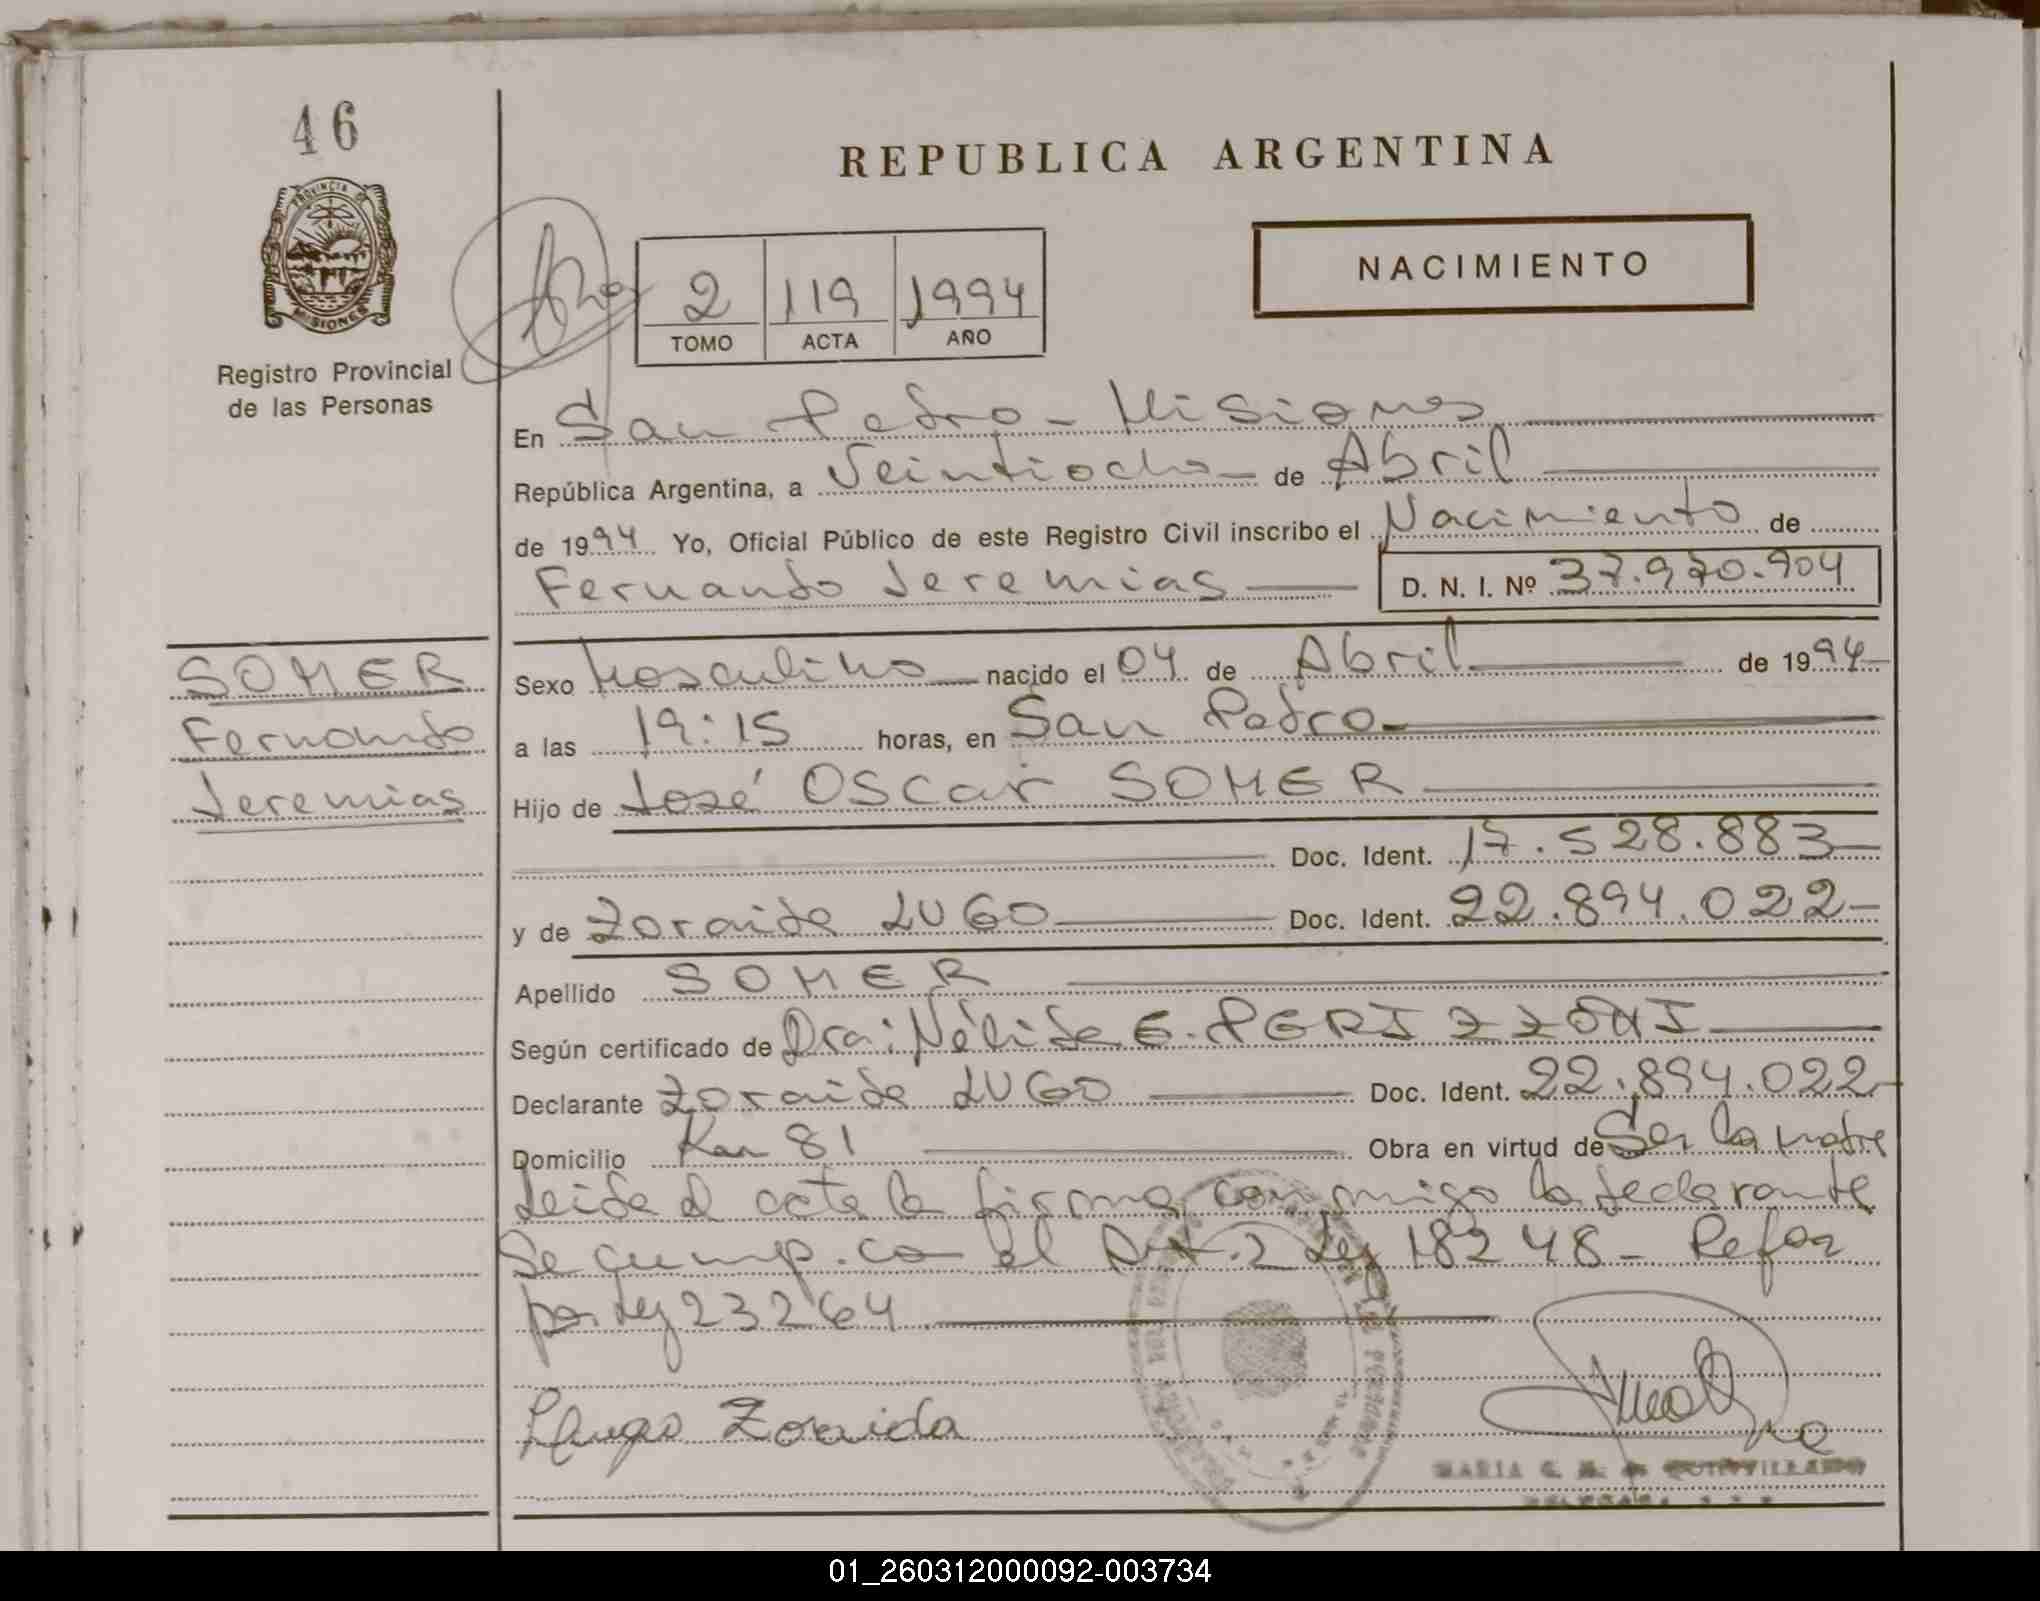 46
REPUBLICA ARGENTINA
PROVINCIA DE
MISIONES
Registro Provincial
de las Personas
NACIMIENTO
2 119 1994
TOMO ACTA AÑO
En San Pedro - Misiones
República Argentina, a Veintiocho de Abril
de 1994 Yo, Oficial Público de este Registro Civil inscribo el Nacimiento de
Fernando Jeremias D. N. I. Nº 37.970.904
SOMER
Fernando
Jeremias
Sexo Masculino nacido el 04 de Abril de 1994
a las 19:15 horas, en San Pedro
Hijo de José Oscar SOMER
Doc. Ident. 17.528.883
y de Zoraida LUGO Doc. Ident. 22.894.022
Apellido SOMER
Según certificado de Dra: Nélida E. PERIZZONI
Declarante Zoraida LUGO Doc. Ident. 22.894.022
Domicilio Km 81 Obra en virtud de Ser la madre
Leida el acta la firma conmigo la declarante
Se cump. co el Art. 2 Ley 18248 - Refor
por Ley 23264
Lugo Zoraida
MARIA G.
01_260312000092-003734